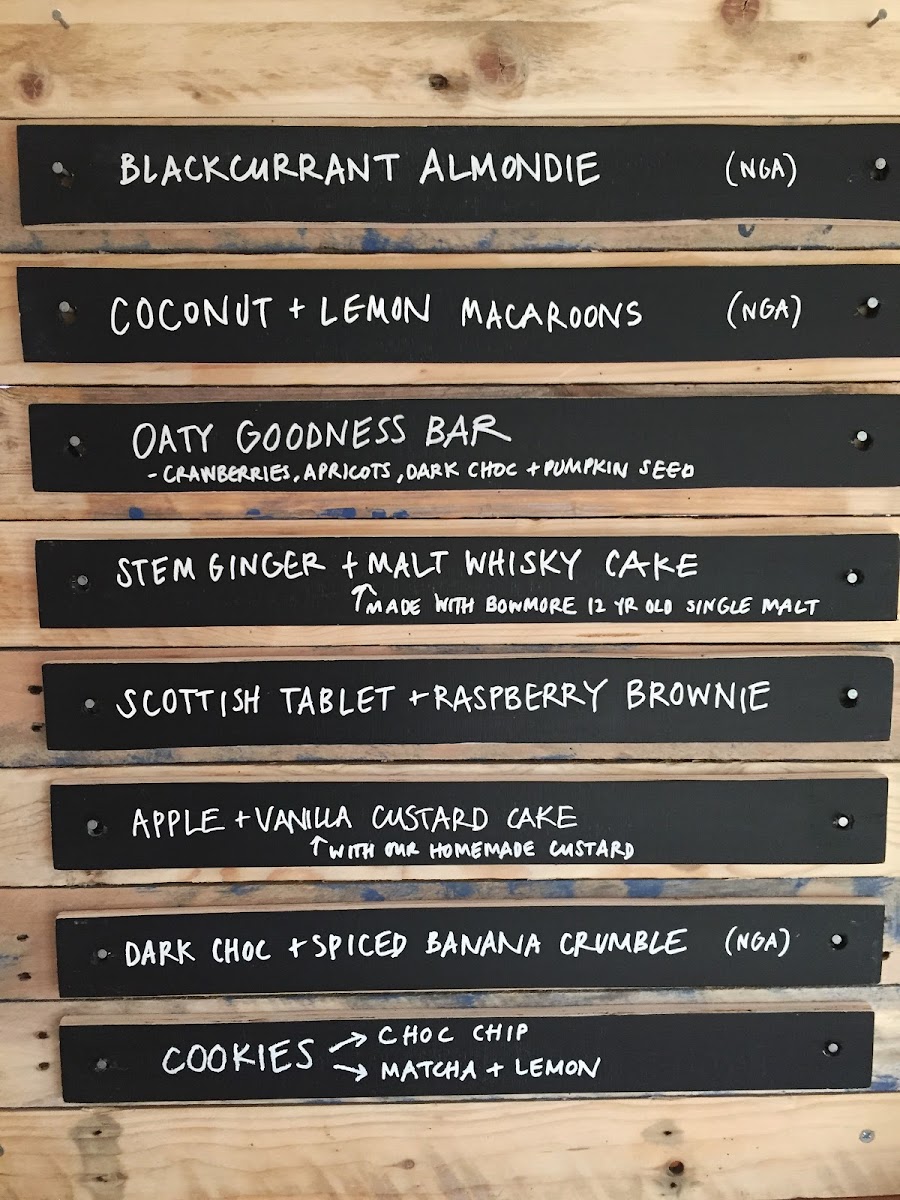 BLACKCURRANT ALMONDIE (NGA)
COCONUT + LEMON MACAROONS (NGA)
OATY GOODNESS BAR
- CRANBERRIES, APRICOTS, DARK CHOC + PUMPKIN SEED
STEM GINGER + MALT WHISKY CAKE
↑MADE WITH BOWMORE 12 YR OLD SINGLE MALT
SCOTTISH TABLET + RASPBERRY BROWNIE
APPLE + VANILLA CUSTARD CAKE
↑WITH OUR HOMEMADE CUSTARD
DARK CHOC + SPICED BANANA CRUMBLE (NGA)
COOKIES → CHOC CHIP
→ MATCHA + LEMON